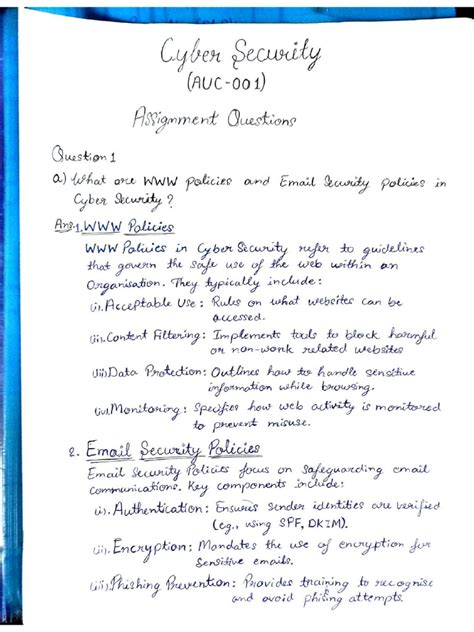 Cyber Security
(AUC-001)
Assignment Questions
Question 1
a) What are WWW policies and Email Security policies in
Cyber Security?
Ans 1. WWW Policies
WWW Policies in Cyber Security refer to guidelines
that govern the safe use of the web within an
Organisation. They typically include:
(i). Acceptable Use: Rules on what websites can be
accessed.
(ii). Content Filtering: Implements tools to block harmful
or non-work related websites
(iii) Data Protection: Outlines how to handle sensitive
information while browsing.
(iv). Monitoring: Specifies how web activity is monitored
to prevent misuse.
2. Email Security Policies
Email Security Policies focus on safeguarding email
communications. Key components include:
(i). Authentication: Ensures sender identities are verified
(e.g., using SPF, DKIM).
(ii). Encryption: Mandates the use of encryption for
Sensitive emails.
(iii). Phishing Prevention: Provides training to recognise
and avoid phishing attempts.